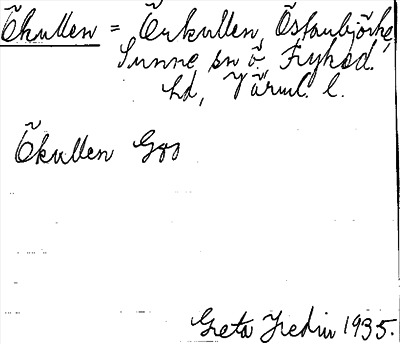 Ökullen = Örkullen, Östanbjörke,
Sunne sn ö. Fryksd.
hd, Värml. l.
Ökullen Goo
Greta Hedin 1935.